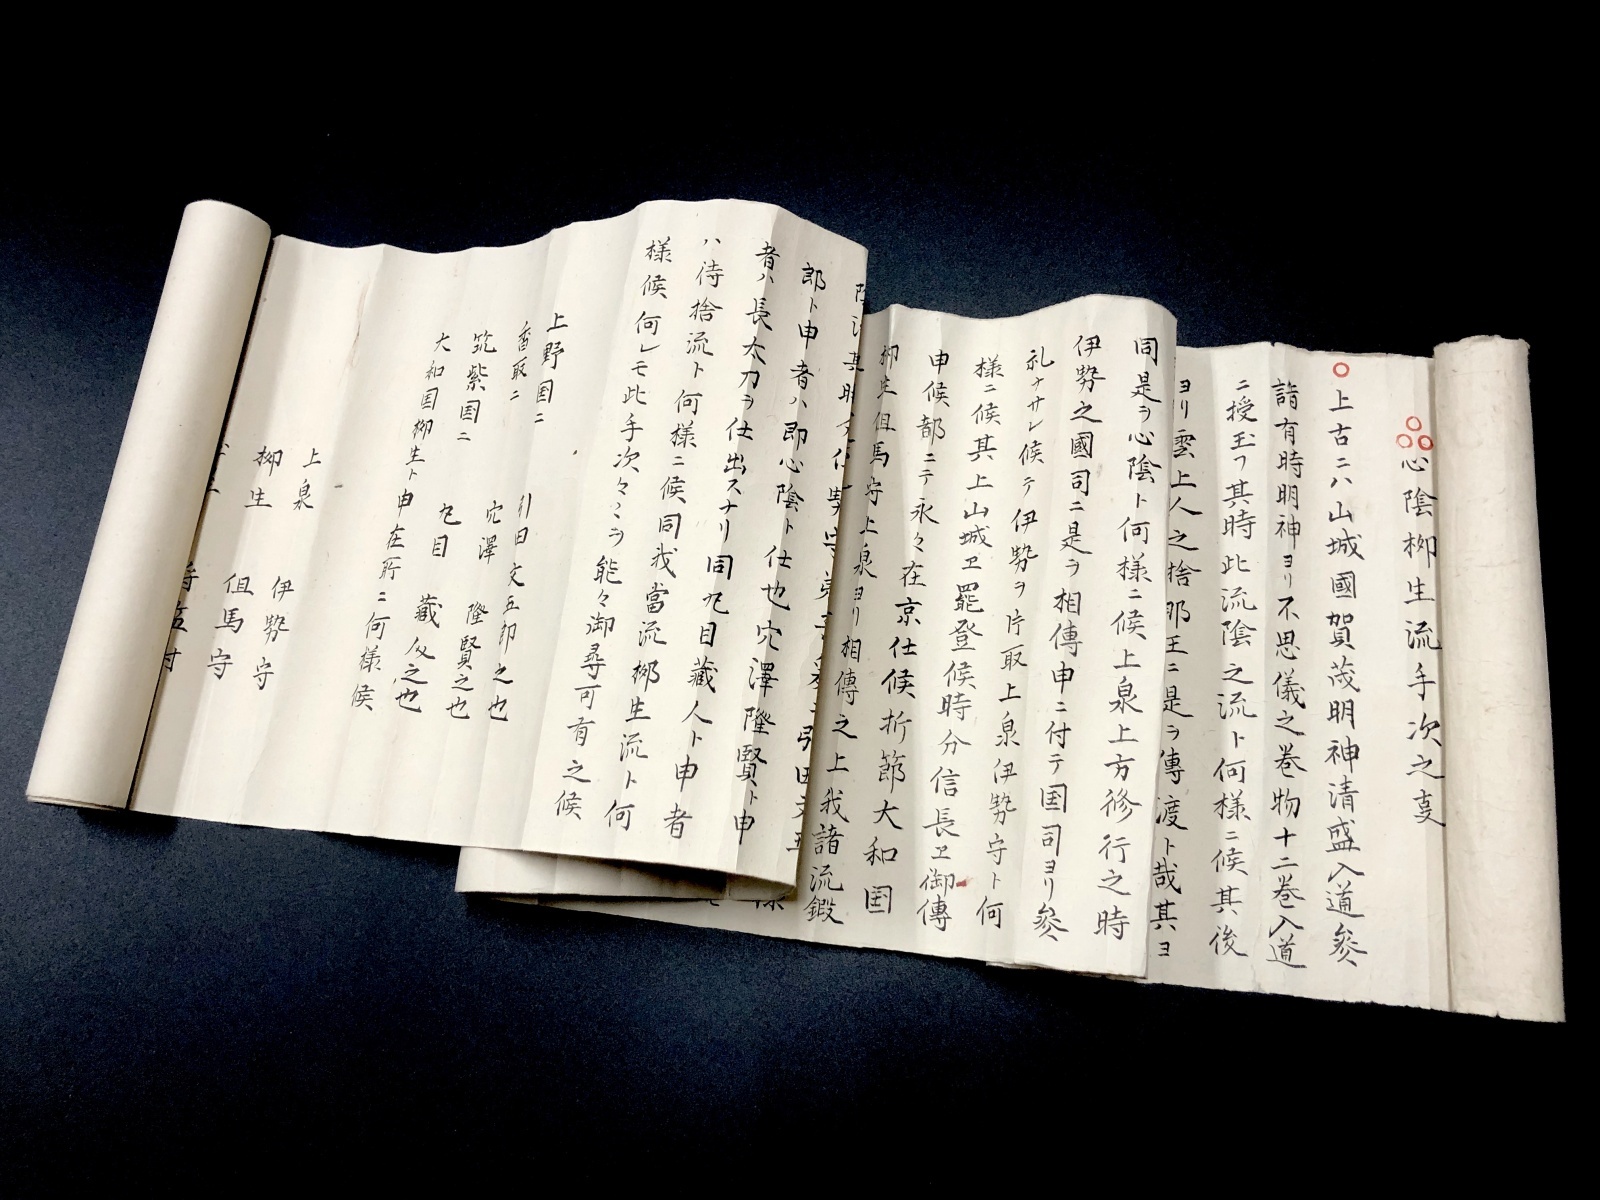 心陰栁生流手次之㕝
上古ニハ山城國賀茂明神清盛入道参
詣有時明神ヨリ不思儀之巻物十二巻入道
ニ授玉フ其時此流陰之流ト何様ニ候其後
ヨリ雲上人之捨那王ニ是ヲ傳渡ト哉其ヨ
同是ヲ心陰ト何様ニ候上泉上方修行之時
伊勢之國司ニ是ヲ相傳申ニ付テ国司ヨリ参
礼ナサレ候テ伊勢ヲ片取上泉伊勢守ト何
様ニ候其上山城ヱ罷登候時分信長ヱ御傳
申候都ニテ永々在京仕候折節大和国
栁生伹馬守上泉ヨリ相傳之上我諸流鍛
郎ト申者ハ即心陰ト仕也穴澤隆賢ト申
者ハ長太刀ヲ仕出スナリ同丸目藏人ト申者
ハ待捨流ト何様ニ候同我當流栁生流ト何
様候何レモ此手次々ヲ能々御尋可有之候
上野国ニ 引田文五郎之也
香取ニ 穴澤 隆賢之也
筑紫国ニ 丸目 藏人之也
大和国栁生ト申在所ニ何様候
上泉 伊勢守
栁生 伹馬守